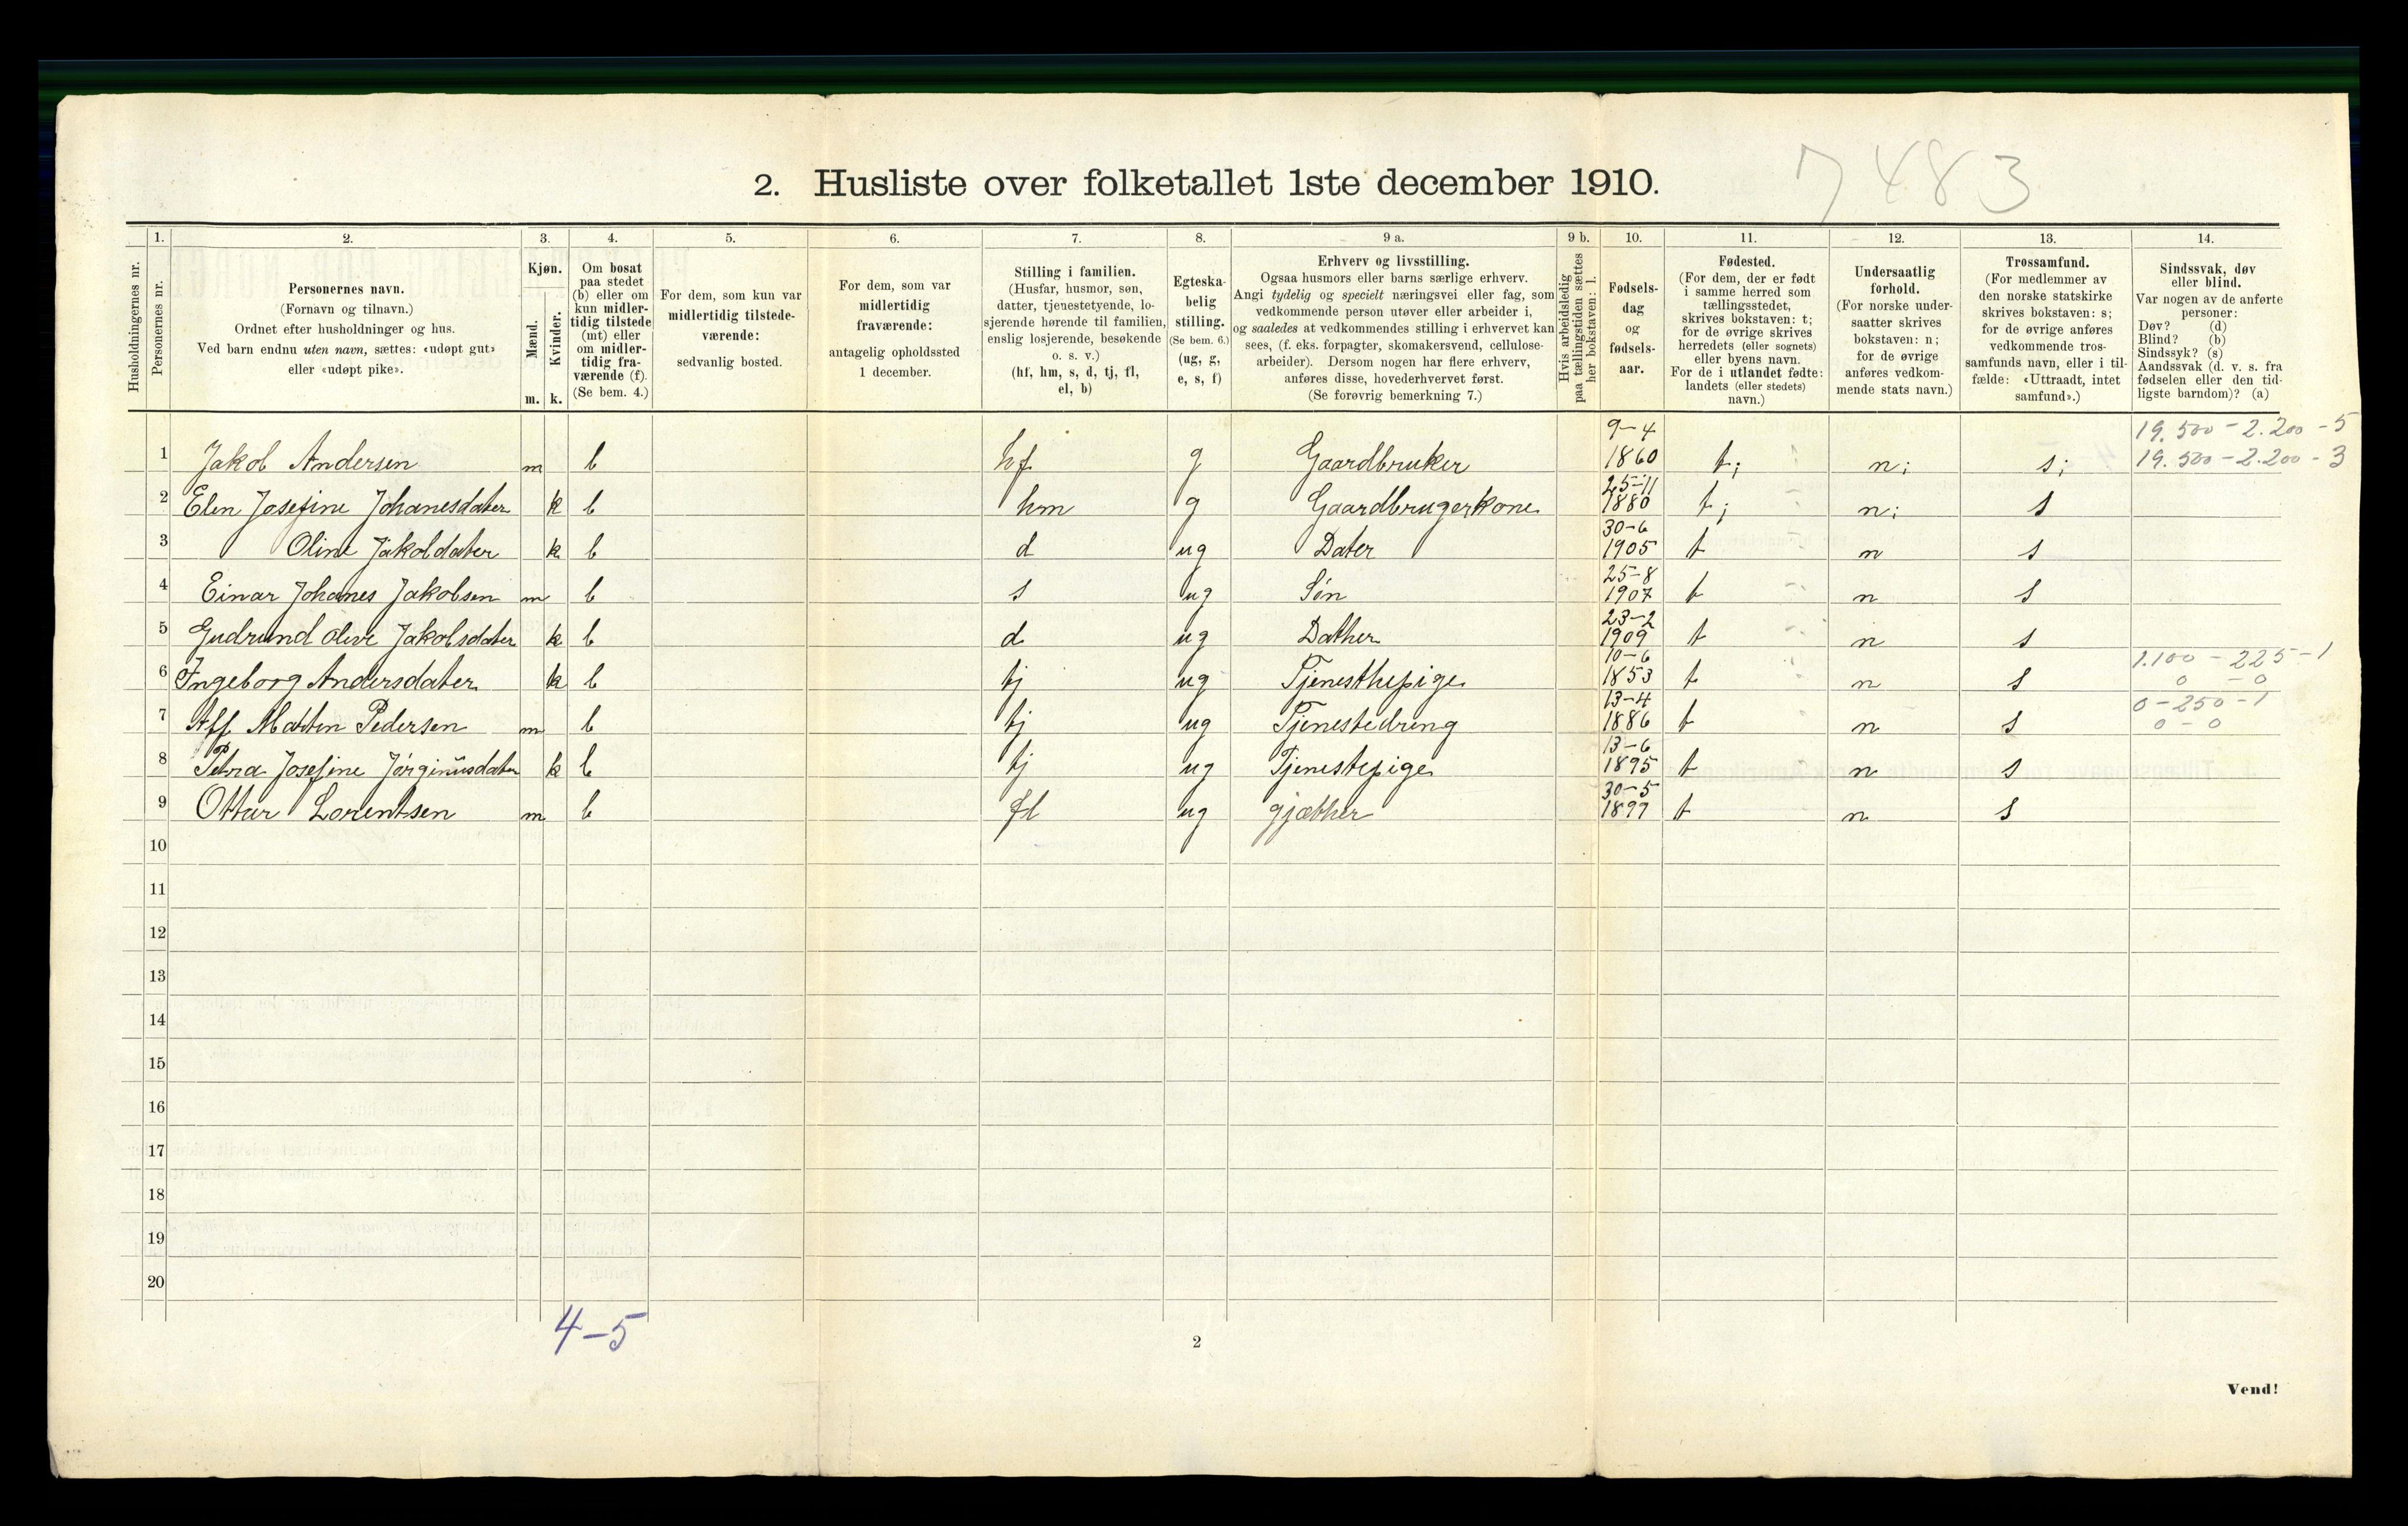 7483
2. Husliste over folketallet 1ste december 1910.
Husholdningernes nr.
1.
Personernes nr.
2.
Personernes navn.
(Fornavn og tilnavn.)
Ordnet efter husholdninger og hus.
Ved barn endnu uten navn, sættes: «udøpt gut»
eller «udøpt pike».
3.
Kjøn.
Mænd.
Kvinder.
m. k.
4.
Om bosat
paa stedet
(b) eller om
kun midler-
tidig tilstede
(mt) eller
om midler-
tidig fra-
værende (f).
(Se bem. 4.)
5.
For dem, som kun var
midlertidig tilstede-
værende:
sedvanlig bosted.
6.
For dem, som var
midlertidig
fraværende:
antagelig opholdssted
1 december.
7.
Stilling i familien.
(Husfar, husmor, søn,
datter, tjenestetyende, lo-
sjerende hørende til familien,
enslig losjerende, besøkende
o. s. v.)
(hf, hm, s, d, tj, fl,
el, b)
8.
Egteska-
belig
stilling.
(Se bem. 6.)
(ug, g,
e, s, f)
9 a.
Erhverv og livsstilling.
Ogsaa husmors eller barns særlige erhverv.
Angi tydelig og specielt næringsvei eller fag, som
vedkommende person utøver eller arbeider i,
og saaledes at vedkommendes stilling i erhvervet kan
sees, (f. eks. forpagter, skomakersvend, cellulose-
arbeider). Dersom nogen har flere erhverv,
anføres disse, hovederhvervet først.
(Se forøvrig bemerkning 7.)
9 b.
Hvis arbeidsledig
paa tællingstiden sættes
her bokstaven: l.
10.
Fødsels-
dag
og
fødsels-
aar.
11.
Fødested.
(For dem, der er født
i samme herred som
tællingsstedet,
skrives bokstaven: t;
for de øvrige skrives
herredets (eller sognets)
eller byens navn.
For de i utlandet fødte:
landets (eller stedets)
navn.)
12.
Undersaatlig
forhold.
(For norske under-
saatter skrives
bokstaven: n;
for de øvrige
anføres vedkom-
mende stats navn.)
13.
Trossamfund.
(For medlemmer av
den norske statskirke
skrives bokstaven: s;
for de øvrige anføres
vedkommende tros-
samfunds navn, eller i til-
fælde: «Uttraadt, intet
samfund».)
14.
Sindssvak, døv
eller blind.
Var nogen av de anførte
personer:
Døv? (d)
Blind? (b)
Sindssyk? (s)
Aandssvak (d. v. s. fra
fødselen eller den tid-
ligste barndom)? (a)
1 Jakob Andersen m b hf g Gaardbruker 9-4 1860 t; n; s; 19.500-2.200-5
19.500-2.200-3
2 Elen Josefine Johanesdater k b hm g Gaardbrugerkone 25-11 1880 t; n; s
3 Oline Jakoldater k b d ug Dater 30-6 1905 t n s
4 Einar Johanes Jakobsen m b s ug Sön 25-8 1907 t n s
5 Gudrund Olive Jakobsdater k b d ug Dather 23-2 1909 t n s
6 Ingeborg Andersdater k b tj ug Tjenesthepige 10-6 1853 t n s 1.100-225-1
0 - 0
7 Alf Matten Pedersen m b tj ug Tjenestedreng 13-4 1886 t n s 0-250-1
0-0
8 Petra Josefine Jørginusdater k b tj ug Tjenestepige 13-6 1895 t n s
9 Ottar Lorentsen m b fl ug gjæther 30-5 1897 t n s
10
11
12
13
14
15
16
17
18
19
20
4-5
2
Vend!